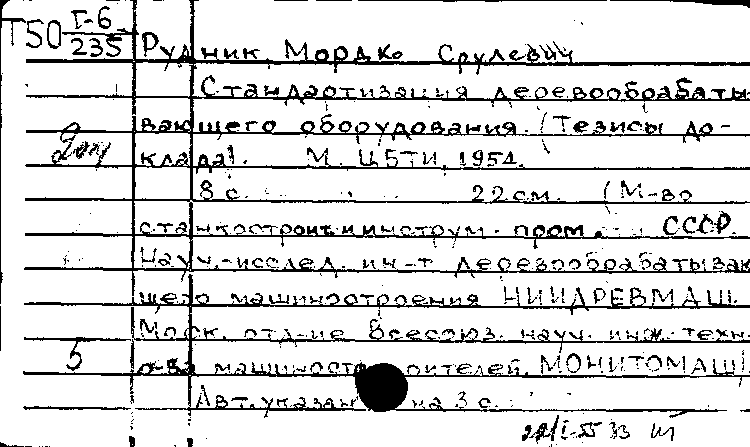 Т50 Г-6/235
Рудник, Мордко Срулевич
Стандартизация деревообрабаты-
вающего оборудования. (Тезисы до-
клада). М. ЦБТИ, 1954.
8 с. 22 см. (М-во
станкостроит. и инструм. пром. СССР.
Науч.-исслед. ин-т деревообрабатываю
щего машиностроения НИИДРЕВМАШ.
Моск. отд-ние Всесоюз. науч. инж. техн.
5 о-ва машиностроителей. МОНИТОМАШ)
Авт. указан на 3 с.